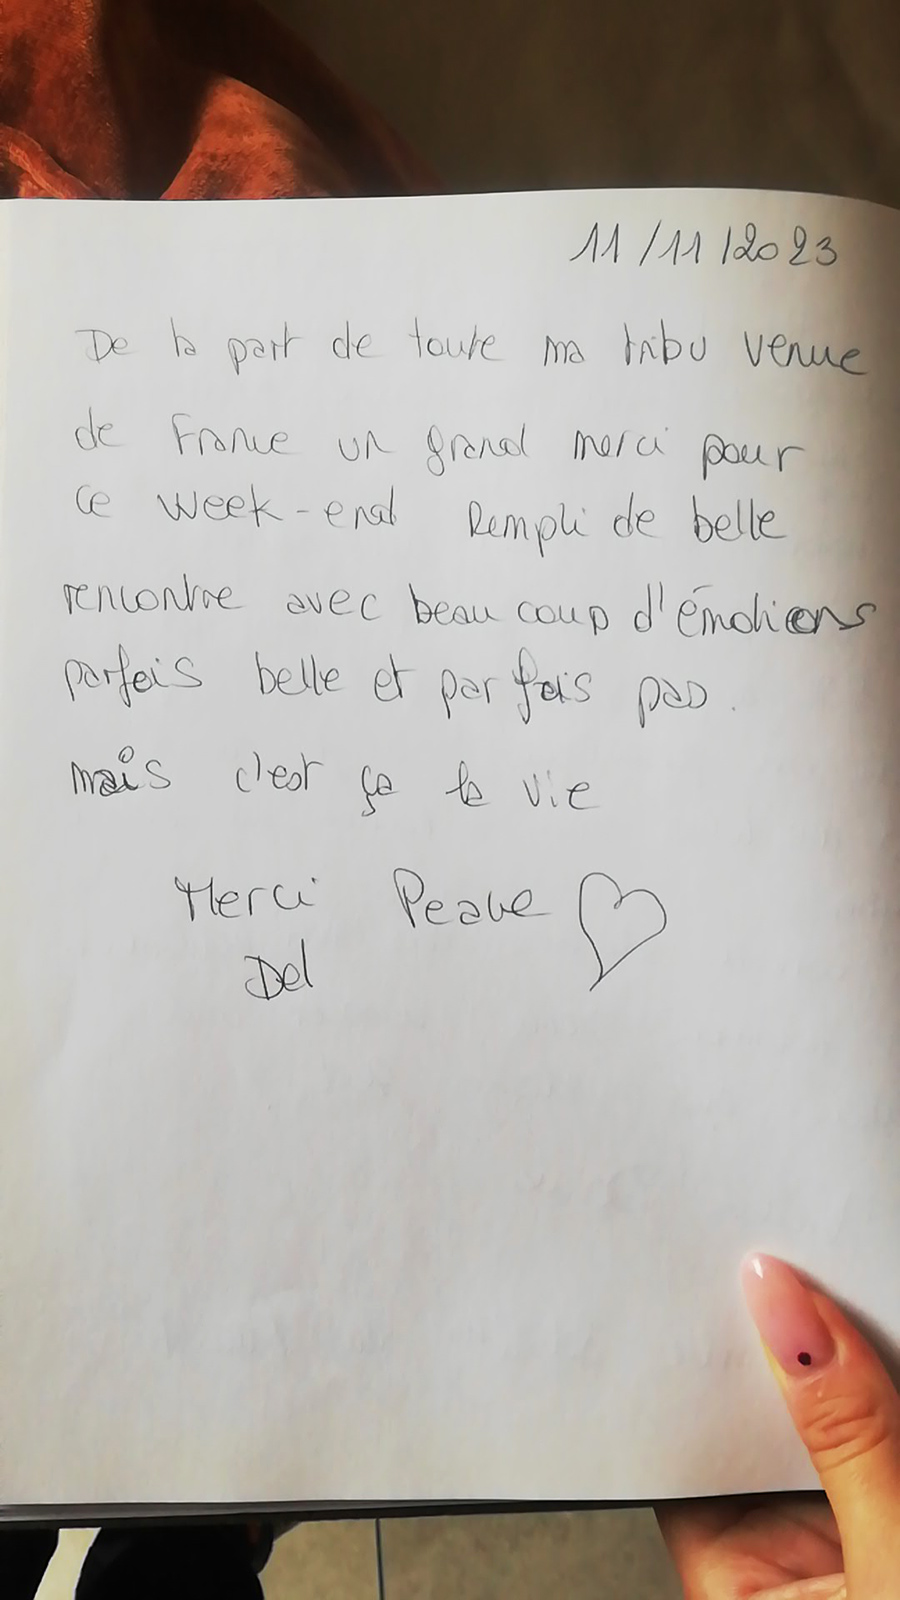 11/11/2023
De la part de toute ma tribu venue
de France un grand merci pour
ce week-end Rempli de belle
rencontre avec beaucoup d'émotions
parfois belle et parfois pas.
mais c'est ça la vie
Merci Peave
Del